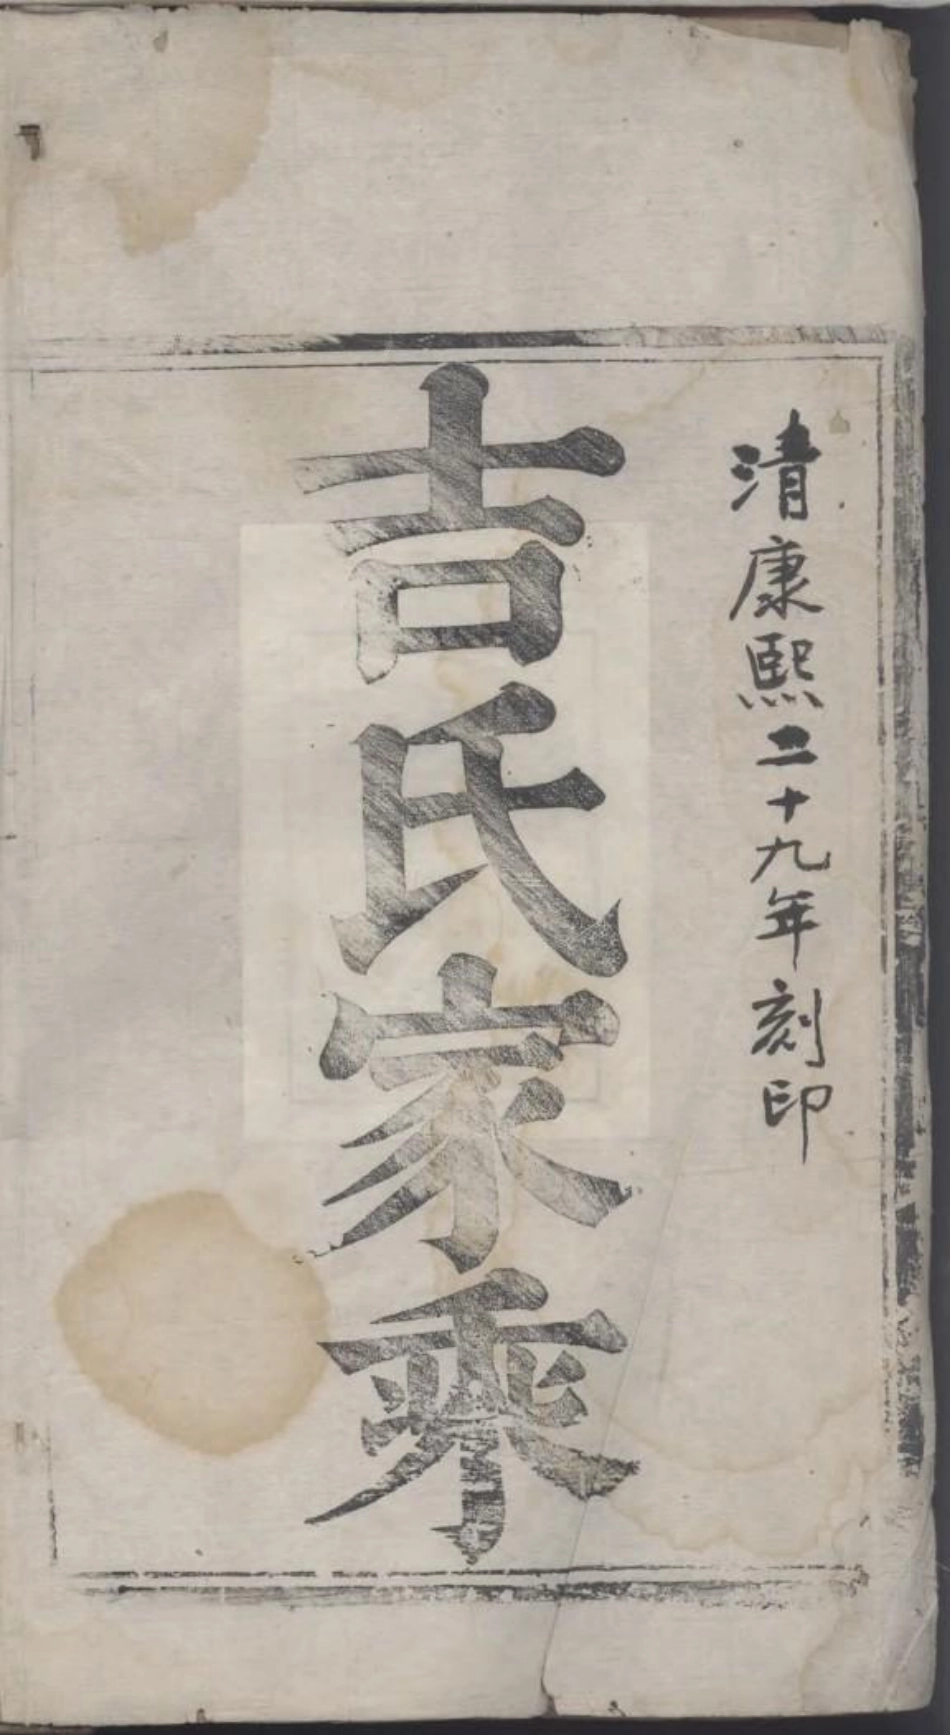 清康熙二十九年刻印
吉氏家乘